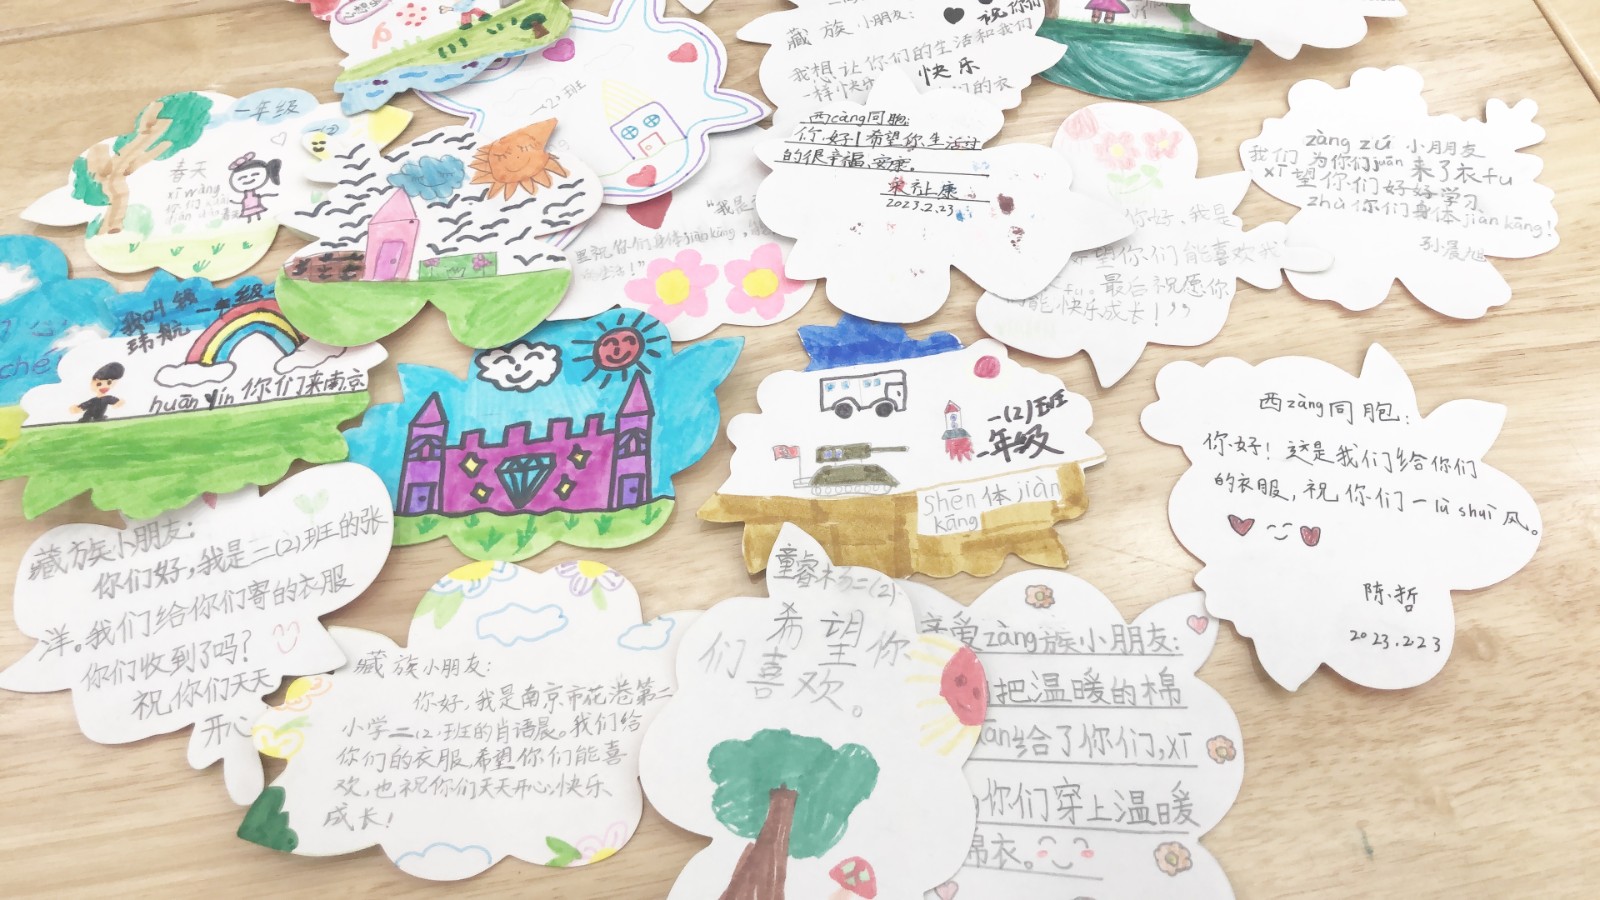 藏族小朋友：
祝你们
我想让你们的生活和我们
一样快乐
快乐
们的衣
(2)班
一年级
春天
xī wàng
西cáng同胞:
你好!希望你生活过
的很幸福、安康。
2023.2.23
zàng zú 小朋友
我们为你们juān来了衣fu
xī望你们好好学习
zhù你们身体jiàn kāng!
孙晨旭
"我是
里祝你们身体jiànkāng,
生活!"
你好,我是
望你们能喜欢我
fu。最后祝愿你
能快乐成长!"
ché
一年级
玮航
huān yín 你们来南京
一(2)班
一年级
shēn体jiàn
kāng
西zàng同胞:
你好!这是我们给你们
的衣服,祝你们一lù shuì风。
陈哲
2023.2.23
藏族小朋友:
你们好,我是二(2)班的张
洋。我们给你们寄的衣服
你们收到了吗?
祝你们天天
开心
藏族小朋友:
你好,我是南京市花港第二
小学二(2)班的肖语晨。我们给
你们的衣服,希望你们能喜
欢,也祝你们天天开心,快乐
成长!
二(2)
希望你
们喜欢。
亲爱zàng族小朋友:
把温暖的棉
给了你们,xī
你们穿上温暖
棉衣。